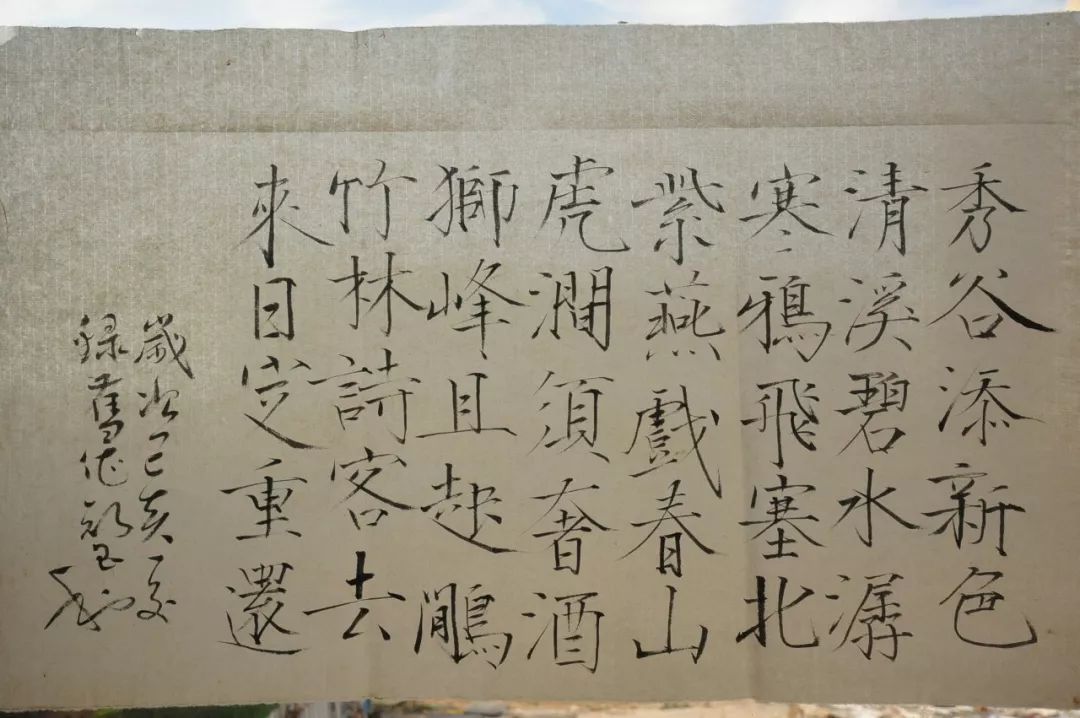 秀谷添新色
清溪碧水潺
寒鴉飛塞北
紫燕戲春山
虎澗須奢酒
獅峰且起鵰
竹林詩客去
來日定重還
歲次己亥夏
錄舊作